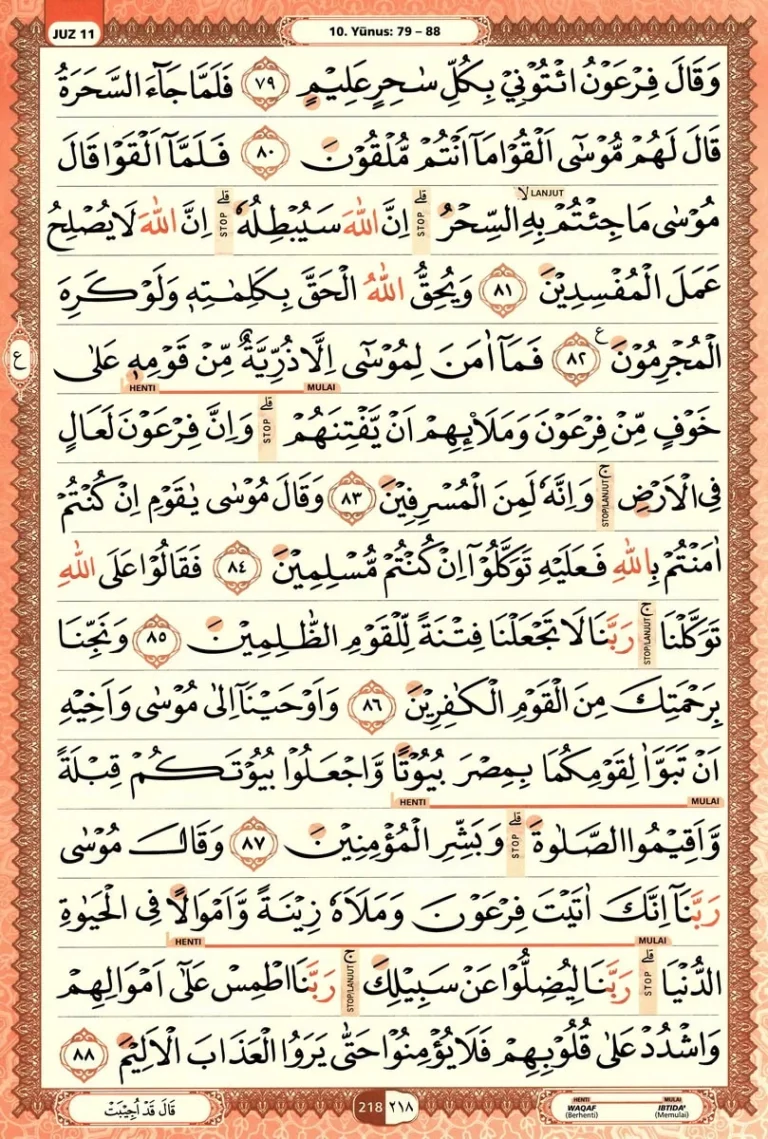 JUZ 11
10. Yūnus: 79 – 88
وَقَالَ فِرْعَوْنُ ائْتُوْنِيْ بِكُلِّ سٰحِرٍ عَلِيْمٍ ٧٩ فَلَمَّا جَاۤءَ السَّحَرَةُ
قَالَ لَهُمْ مُّوْسٰٓى اَلْقُوْا مَآ اَنْتُمْ مُّلْقُوْنَ ٨٠ فَلَمَّآ اَلْقَوْا قَالَ
LANJUT
مُوْسٰى مَا جِئْتُمْ بِهِ السِّحْرُۙ STOP قلى اِنَّ اللّٰهَ سَيُبْطِلُهٗ STOP قلى اِنَّ اللّٰهَ لَا يُصْلِحُ
عَمَلَ الْمُفْسِدِيْنَ ٨١ وَيُحِقُّ اللّٰهُ الْحَقَّ بِكَلِمٰتِهٖ وَلَوْ كَرِهَ
ع
الْمُجْرِمُوْنَ ࣖ ٨٢ فَمَآ اٰمَنَ لِمُوْسٰٓى اِلَّا ذُرِّيَّةٌ مِّنْ قَوْمِهٖ عَلٰى
HENTI MULAI
خَوْفٍ مِّنْ فِرْعَوْنَ وَمَلَا۟ىِٕهِمْ اَنْ يَّفْتِنَهُمْ STOP قلى وَاِنَّ فِرْعَوْنَ لَعَالٍ
فِى الْاَرْضِ STOP/LANJUT ج وَاِنَّهٗ لَمِنَ الْمُسْرِفِيْنَ ٨٣ وَقَالَ مُوْسٰى يٰقَوْمِ اِنْ كُنْتُمْ
اٰمَنْتُمْ بِاللّٰهِ فَعَلَيْهِ تَوَكَّلُوْٓا اِنْ كُنْتُمْ مُّسْلِمِيْنَ ٨٤ فَقَالُوْا عَلَى اللّٰهِ
تَوَكَّلْنَا STOP/LANJUT ج رَبَّنَا لَا تَجْعَلْنَا فِتْنَةً لِّلْقَوْمِ الظّٰلِمِيْنَ ٨٥ وَنَجِّنَا
بِرَحْمَتِكَ مِنَ الْقَوْمِ الْكٰفِرِيْنَ ٨٦ وَاَوْحَيْنَآ اِلٰى مُوْسٰى وَاَخِيْهِ
اَنْ تَبَوَّاٰ لِقَوْمِكُمَا بِمِصْرَ بُيُوْتًا وَّاجْعَلُوْا بُيُوْتَكُمْ قِبْلَةً
HENTI MULAI
وَّاَقِيْمُوا الصَّلٰوةَ STOP قلى وَبَشِّرِ الْمُؤْمِنِيْنَ ٨٧ وَقَالَ مُوْسٰى
رَبَّنَآ اِنَّكَ اٰتَيْتَ فِرْعَوْنَ وَمَلَاَهٗ زِيْنَةً وَّاَمْوَالًا فِى الْحَيٰوةِ
HENTI MULAI
الدُّنْيَا STOP قلى رَبَّنَا لِيُضِلُّوْا عَنْ سَبِيْلِكَ STOP/LANJUT ج رَبَّنَا اطْمِسْ عَلٰٓى اَمْوَالِهِمْ
وَاشْدُدْ عَلٰى قُلُوْبِهِمْ فَلَا يُؤْمِنُوْا حَتّٰى يَرَوُا الْعَذَابَ الْاَلِيْمَ ٨٨
قَالَ قَدْ اُجِيْبَتْ
218 ٢١٨
HENTI MULAI
WAQAF IBTIDA'
(Berhenti) (Memulai)